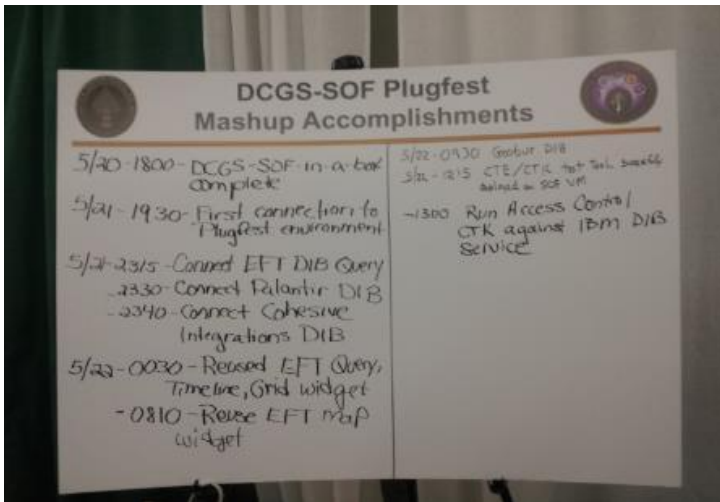 DCGS-SOF Plugfest
Mashup Accomplishments
5/20-1800-DCGS-SOF-in-a-box
complete
5/21-1930-First connection to
Plugfest environment
5/21-2315-Connect EFT DIB Query
-2330-Connect Palantir DIB
-2340-Connect Cohesive
Integrations DIB
5/22-0030-Reused EFT Query,
Timeline, Grid widget
-0810-Reuse EFT map
widget
5/22-0930 DIB
5/22-1215 CTE/CTK test Tool
on SOF VM
-1300 Run Access Control
CTK against IBM DIB
Service